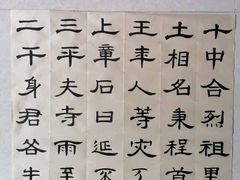 十中合烈祖里
土相名秉程首
王人等灾
上章石曰延
三平夫寺雨至
二千身君谷